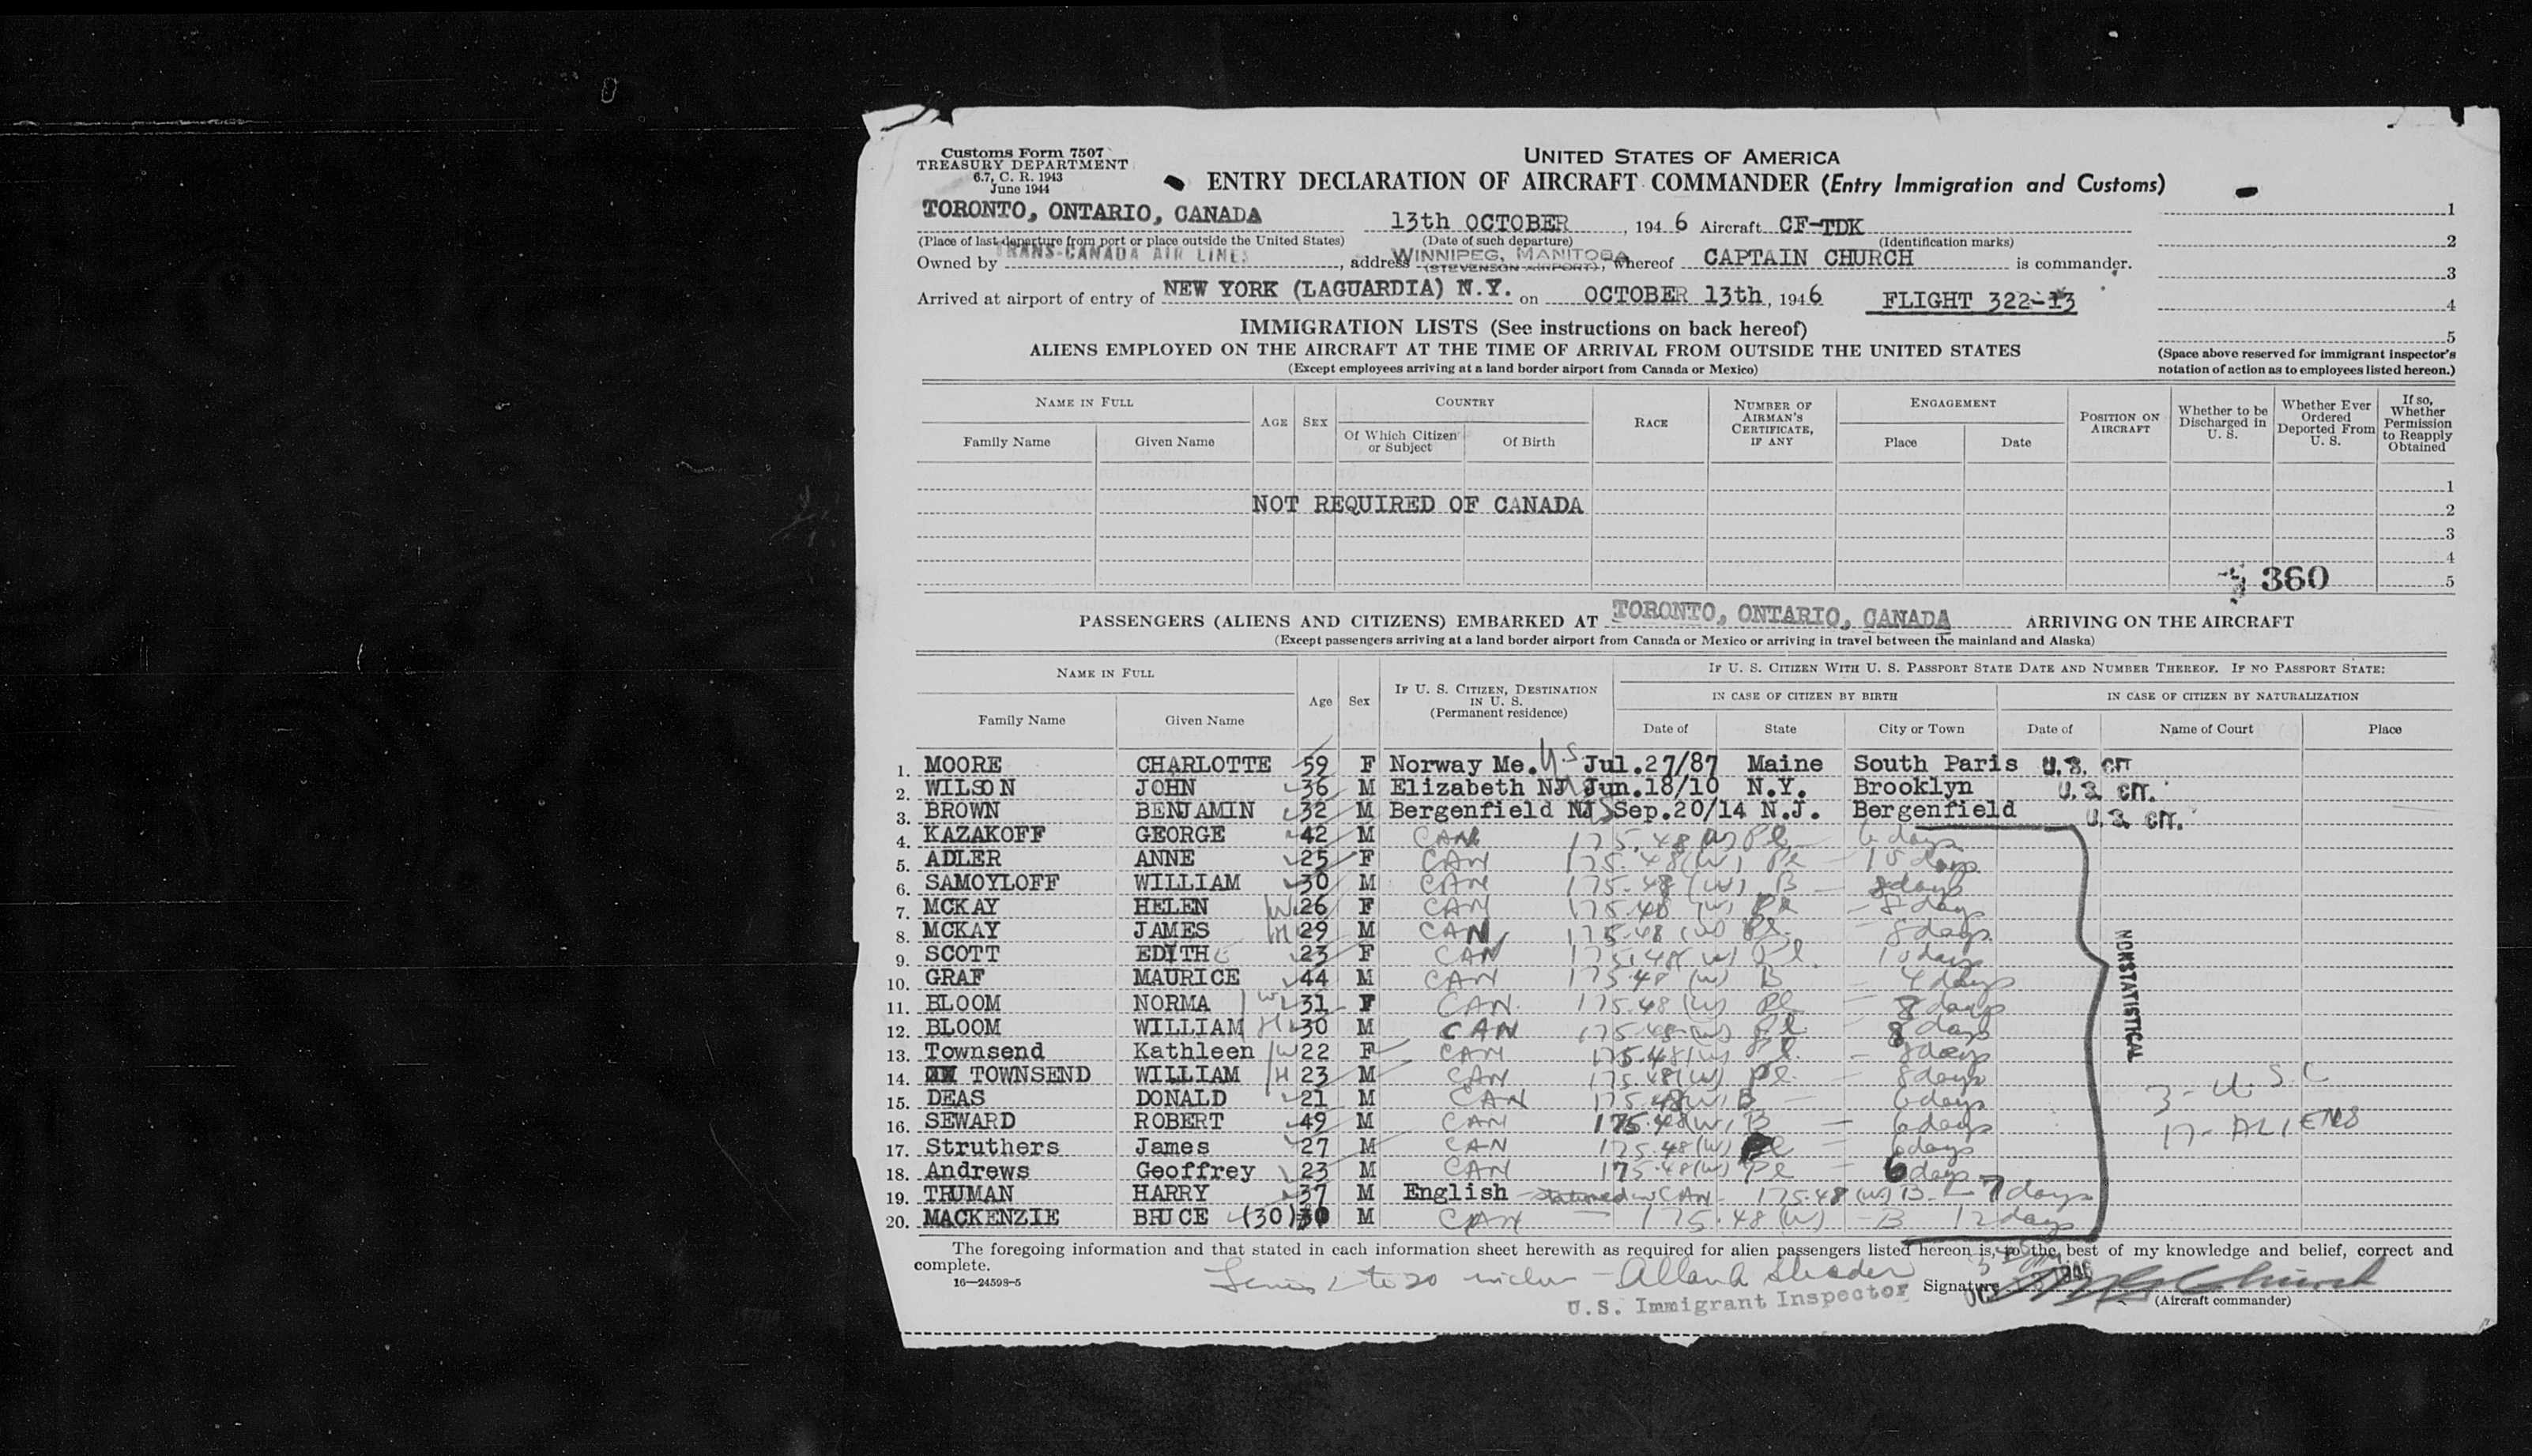 Customs Form 7507
TREASURY DEPARTMENT
6.7, C. R. 1943
June 1944
UNITED STATES OF AMERICA
ENTRY DECLARATION OF AIRCRAFT COMMANDER (Entry Immigration and Customs)
TORONTO, ONTARIO, CANADA 13th OCTOBER, 194 6 Aircraft CF-TDK
(Place of last departure from port or place outside the United States) (Date of such departure) (Identification marks)
Owned by TRANS-CANADA AIR LINES, address WINNIPEG, MANITOBA (STEVENSON AIRPORT), whereof CAPTAIN CHURCH is commander.
Arrived at airport of entry of NEW YORK (LAGUARDIA) N.Y. on OCTOBER 13th, 1946 FLIGHT 322-13
1
2
3
4
5
(Space above reserved for immigrant inspector's
notation of action as to employees listed hereon.)
IMMIGRATION LISTS (See instructions on back hereof)
ALIENS EMPLOYED ON THE AIRCRAFT AT THE TIME OF ARRIVAL FROM OUTSIDE THE UNITED STATES
(Except employees arriving at a land border airport from Canada or Mexico)
NAME IN FULL AGE SEX COUNTRY RACE NUMBER OF AIRMAN'S CERTIFICATE, IF ANY ENGAGEMENT POSITION ON AIRCRAFT Whether to be Discharged in U. S. Whether Ever Ordered Deported From U. S. If so, Whether Permission to Reapply Obtained
Family Name Given Name Of Which Citizen or Subject Of Birth Place Date
1
NOT REQUIRED OF CANADA 2
3
4
360 5
PASSENGERS (ALIENS AND CITIZENS) EMBARKED AT TORONTO, ONTARIO, CANADA ARRIVING ON THE AIRCRAFT
(Except passengers arriving at a land border airport from Canada or Mexico or arriving in travel between the mainland and Alaska)
NAME IN FULL Age Sex IF U. S. CITIZEN, DESTINATION IN U. S. (Permanent residence) IF U. S. CITIZEN WITH U. S. PASSPORT STATE DATE AND NUMBER THEREOF. IF NO PASSPORT STATE:
IN CASE OF CITIZEN BY BIRTH IN CASE OF CITIZEN BY NATURALIZATION
Family Name Given Name Date of State City or Town Date of Name of Court Place
1. MOORE CHARLOTTE 59 F Norway Me. U.S Jul.27/87 Maine South Paris U.S. CIT
2. WILSON JOHN 36 M Elizabeth NJ Jun.18/10 N.Y. Brooklyn U.S. CIT.
3. BROWN BENJAMIN 32 M Bergenfield NJ Sep.20/14 N.J. Bergenfield U.S. CIT.
4. KAZAKOFF GEORGE 42 M CAN 175.48 (W) Pl - 6 days
5. ADLER ANNE 25 F CAN 175.48 (W) Pl - 15 days
6. SAMOYLOFF WILLIAM 30 M CAN 175.48 (W) B - 8 days
7. MCKAY HELEN W 26 F CAN 175.48 (W) Pl - 8 days
8. MCKAY JAMES H 29 M CAN 175.48 (W) Pl. - 8 days
9. SCOTT EDYTH 23 F CAN 175.48 (W) Pl. 10 days
10. GRAF MAURICE 44 M CAN 175.48 (W) B - 4 days
11. BLOOM NORMA W 31 F CAN. 175.48 (W) Pl - 8 days
12. BLOOM WILLIAM H 30 M CAN 175.48 (W) Pl - 8 days
13. Townsend Kathleen W 22 F CAN 175.48 (W) Pl. - 8 days
14. TOWNSEND WILLIAM H 23 M CAN 175.48 (W) Pl. - 8 days
15. DEAS DONALD 21 M CAN 175.48 (W) B - 6 days
16. SEWARD ROBERT 49 M CAN 175.48 (W) B - 6 days
17. Struthers James 27 M CAN 175.48 (W) Pl - 6 days
18. Andrews Geoffrey 23 M CAN 175.48 (W) Pl - 6 days
19. TRUMAN HARRY 37 M English CAN. 175.48 (W) B - 7 days
20. MACKENZIE BRUCE (30) 30 M CAN 175.48 (W) - B 12 days
NONSTATISTICAL
3 - U.S.C
17 - ALIENS
The foregoing information and that stated in each information sheet herewith as required for alien passengers listed hereon is, to the best of my knowledge and belief, correct and
complete.
16—24598-5
to 20
U.S. Immigrant Inspector
Signature Church
(Aircraft commander)